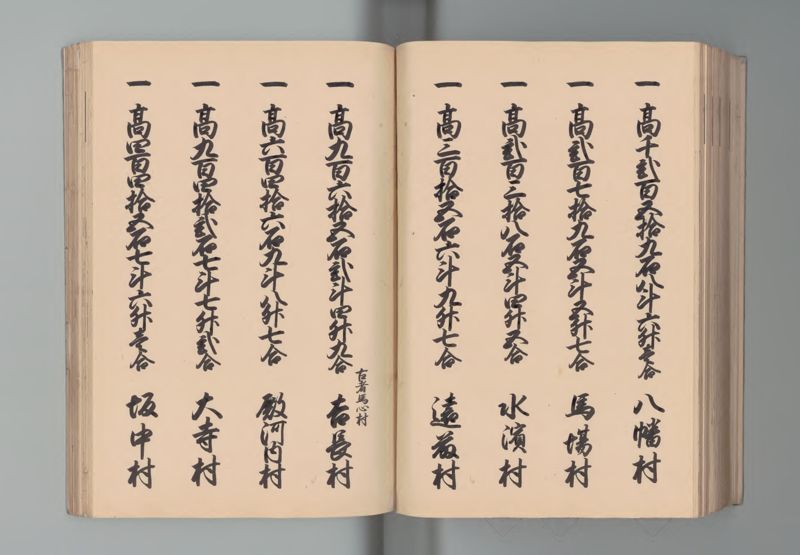 一 高千弐百五拾九石八斗六升壱合 八幡村
一 高弐百七拾九石五斗五升七合 馬場村
一 高弐百三拾八石五斗四升五合 水濱村
一 高三百拾五石六斗九升七合 遠藪村
一 高九百六拾五石弐斗四升九合 吉長村
古者馬心村
一 高六百四拾六石九斗八升七合 殿河内村
一 高九百四拾弐石七斗七升弐合 大寺村
一 高四百四拾五石七斗六升壱合 坂中村